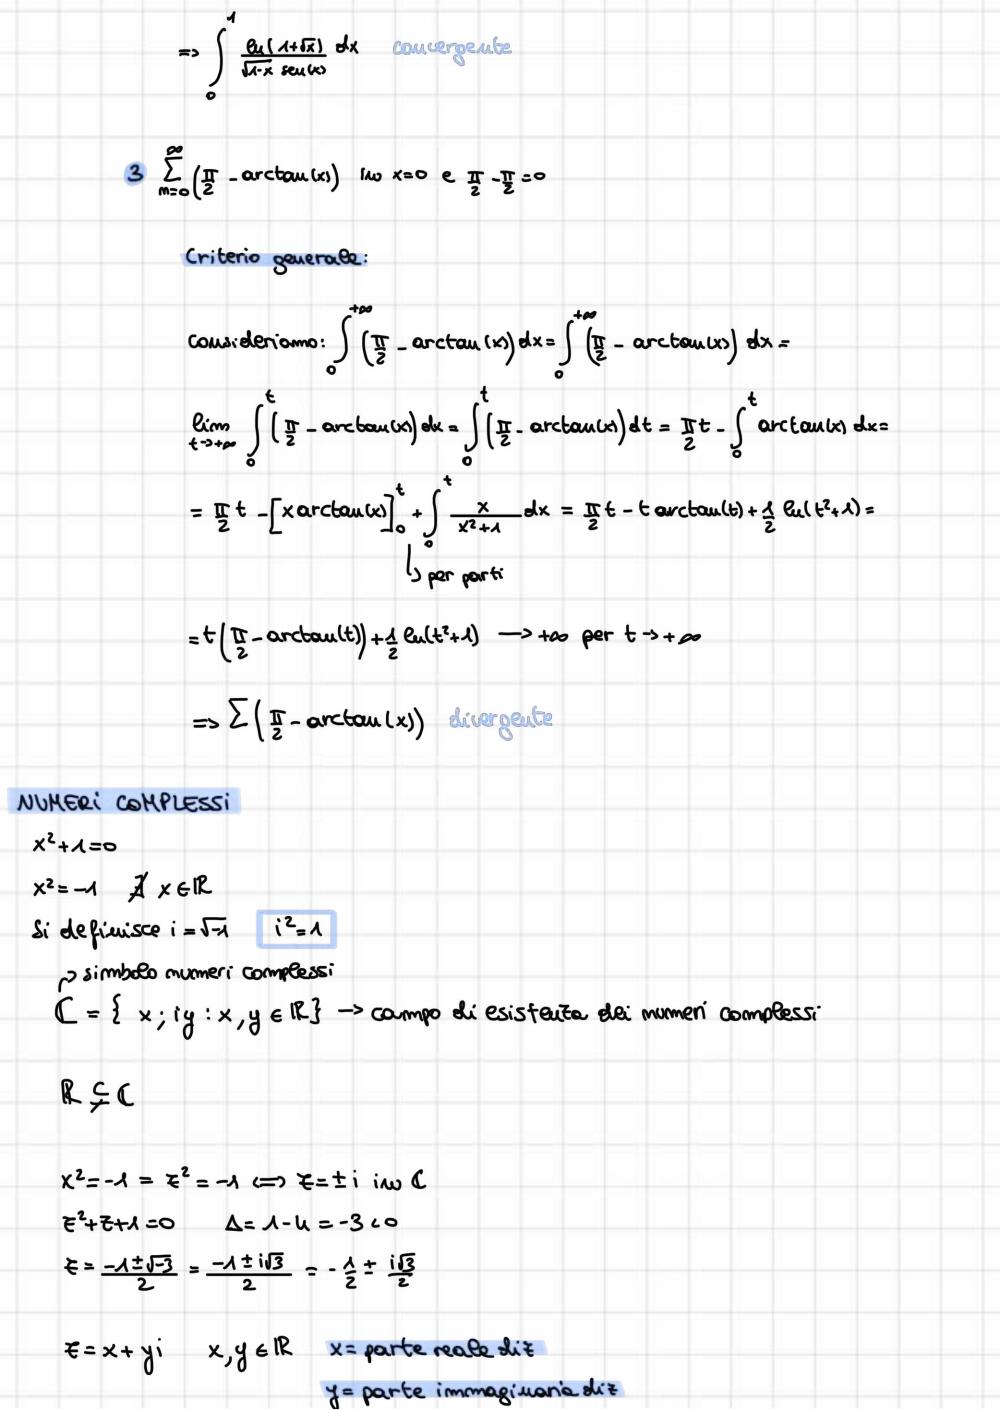 => ∫₀¹ ln(1+√x) / (√1-x sen(x)) dx convergente
3 ∑_{m=0}^{∞} (π/2 - arctan(x)) in x=0 e π/2 - π/2 = 0
Criterio generale:
consideriamo: ∫₀^{+∞} (π/2 - arctan(x)) dx = ∫₀^{+∞} (π/2 - arctan(x)) dx =
lim_{t→+∞} ∫₀^t (π/2 - arctan(x)) dx = ∫₀^t (π/2 - arctan(x)) dt = π/2 t - ∫₀^t arctan(x) dx =
= π/2 t - [x arctan(x)]₀^t + ∫₀^t x/(x²+1) dx = π/2 t - t arctan(t) + 1/2 ln(t²+1) =
↳ per parti
= t(π/2 - arctan(t)) + 1/2 ln(t²+1) → +∞ per t → +∞
=> ∑ (π/2 - arctan(x)) divergente
NUMERI COMPLESSI
x²+1=0
x²=-1 ∄ x∈ℝ
Si definisce i=√-1 i²=1
↱ simbolo numeri complessi
ℂ = { x; iy : x, y ∈ ℝ} → campo di esistenza dei numeri complessi
ℝ ⊊ ℂ
x²=-1 = z²=-1 <=> z=±i in ℂ
z²+z+1=0 Δ= 1-4 = -3 <0
z = (-1±√-3)/2 = (-1±i√3)/2 = -1/2 ± i√3/2
z=x+yi x,y∈ℝ x= parte reale di z
y= parte immaginaria di z